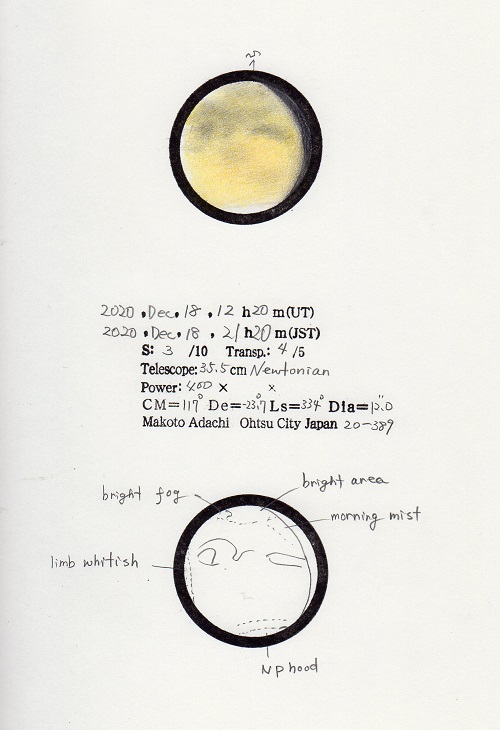 S
2020 . Dec. 18 . 12 h 20 m (UT)
2020 . Dec. 18 . 21 h 20 m (JST)
S: 3 /10 Transp.: 4 /5
Telescope: 35.5 cm Newtonian
Power: 400 × ×
CM=117° De=-23.°7 Ls=334° Dia=12."0
Makoto Adachi Ohtsu City Japan 20-389
bright fog
bright area
morning mist
limb whitish
NP hood